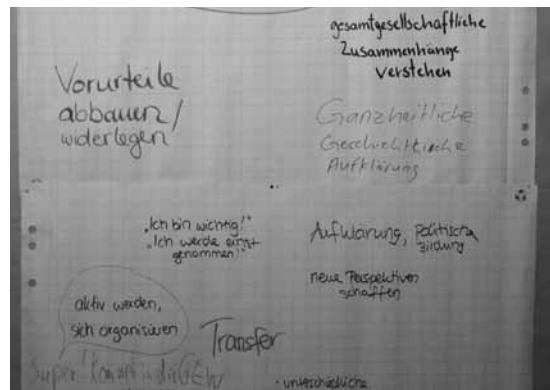 gesamtgesellschaftliche
Zusammenhänge
verstehen
Vorurteile
abbauen/
widerlegen
Ganzheitliche
Geschichtliche
Aufklärung
„Ich bin wichtig!"
„Ich werde ernst
genommen!"
Aufklärung, Politische
Bildung
neue Perspektiven
schaffen
aktiv werden,
sich organisieren
Transfer
Super! Kommt in die GEW
· unterschiedliche